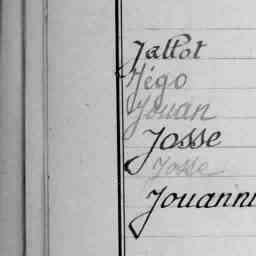 Jallot
Jégo
Jouan
Josse
Josse
Jouann